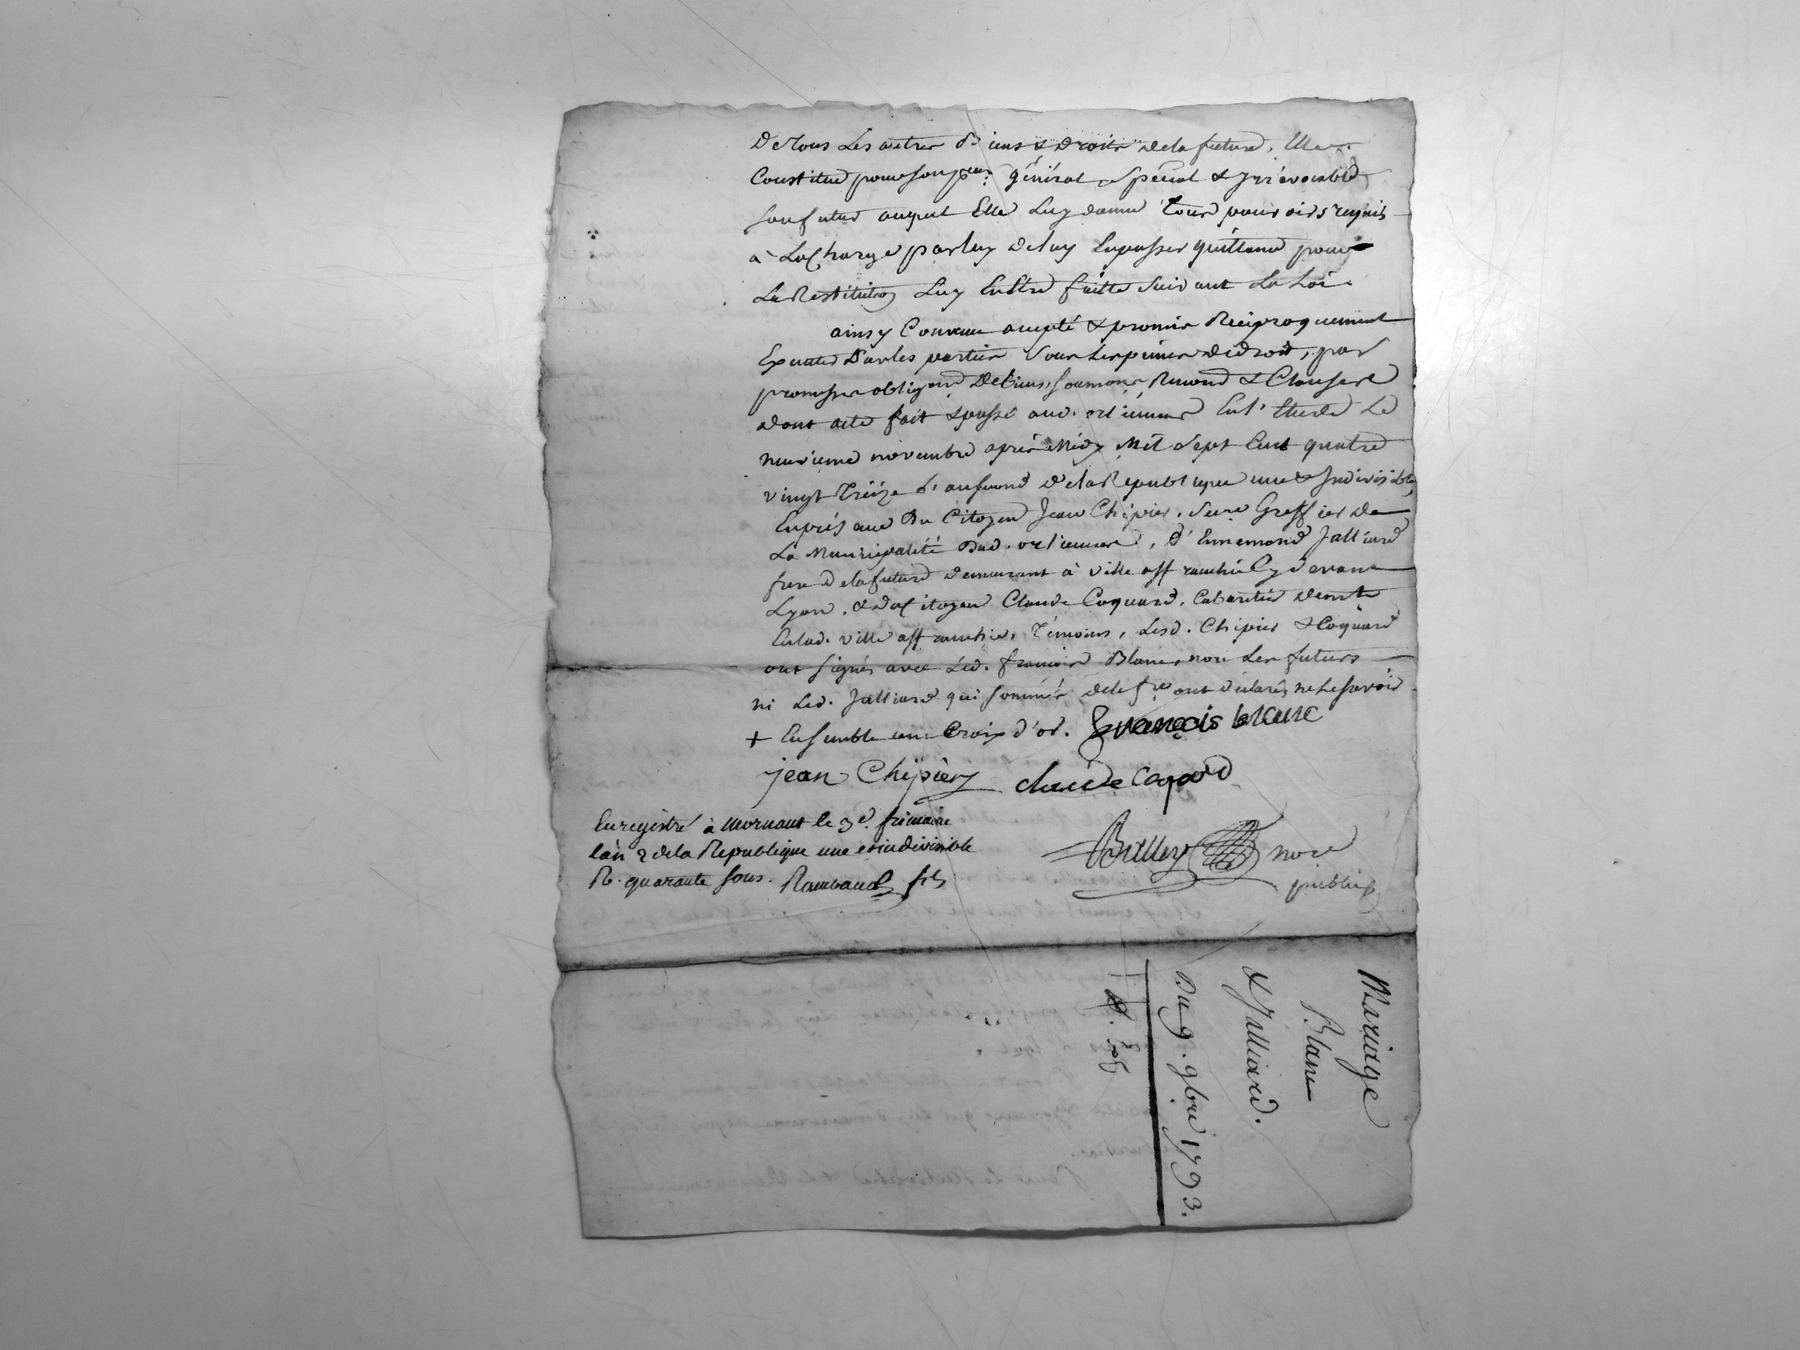 De tous Les autres Biens & Droits de la future, Elle
Constitue pour son peur. général, Spécial & Irrévocable
son futur auquel Elle Luy donne tous pouvoirs requis
à La Charge par luy de luy En passer quittance pour
La Restitution Luy En Etre faitte Suivant La Loi.
ainsy Convenu accepté & promis Réciproquement
Executer Par les parties Sous Les peines de droit, par
promesses obligaõn De biens, soumõns Renonõn & Clauses
dont acte fait & passé aud. orliennas En l'Etude Le
neuvieme novembre après Midy Mil Sept Cent quatre
vingt Treize L'an second de la Republique une & Indivisible,
En présence Du Citoyen Jean Chipier, Secre Greffier De
La Municipalité Dud. orliennas, d'Ennemond Jalliard
frere de la future demeurant à ville affranchie Cy devant
Lyon, & du Citoyen Claude Coquard, Cabaretier demt
En lad. ville affranchie, Témoins, Lesd. Chipier & Coquard
ont signés avec Led. françois Blanc, non Les futurs
ni Led. Jalliard qui sommés de le fre ont déclarés ne Le savoir
+ Ensemble une Croix d'or. françois blanc
jean Chipier claude coquard
Enregistré à Mornant le 3e. frimaire
l'an 2 de la Republique une et indivisible
R. quarante sous. Rambaud fils
nore
public
Mariage
Blanc
& Jalliard.
Du 9. 9bre 1793.